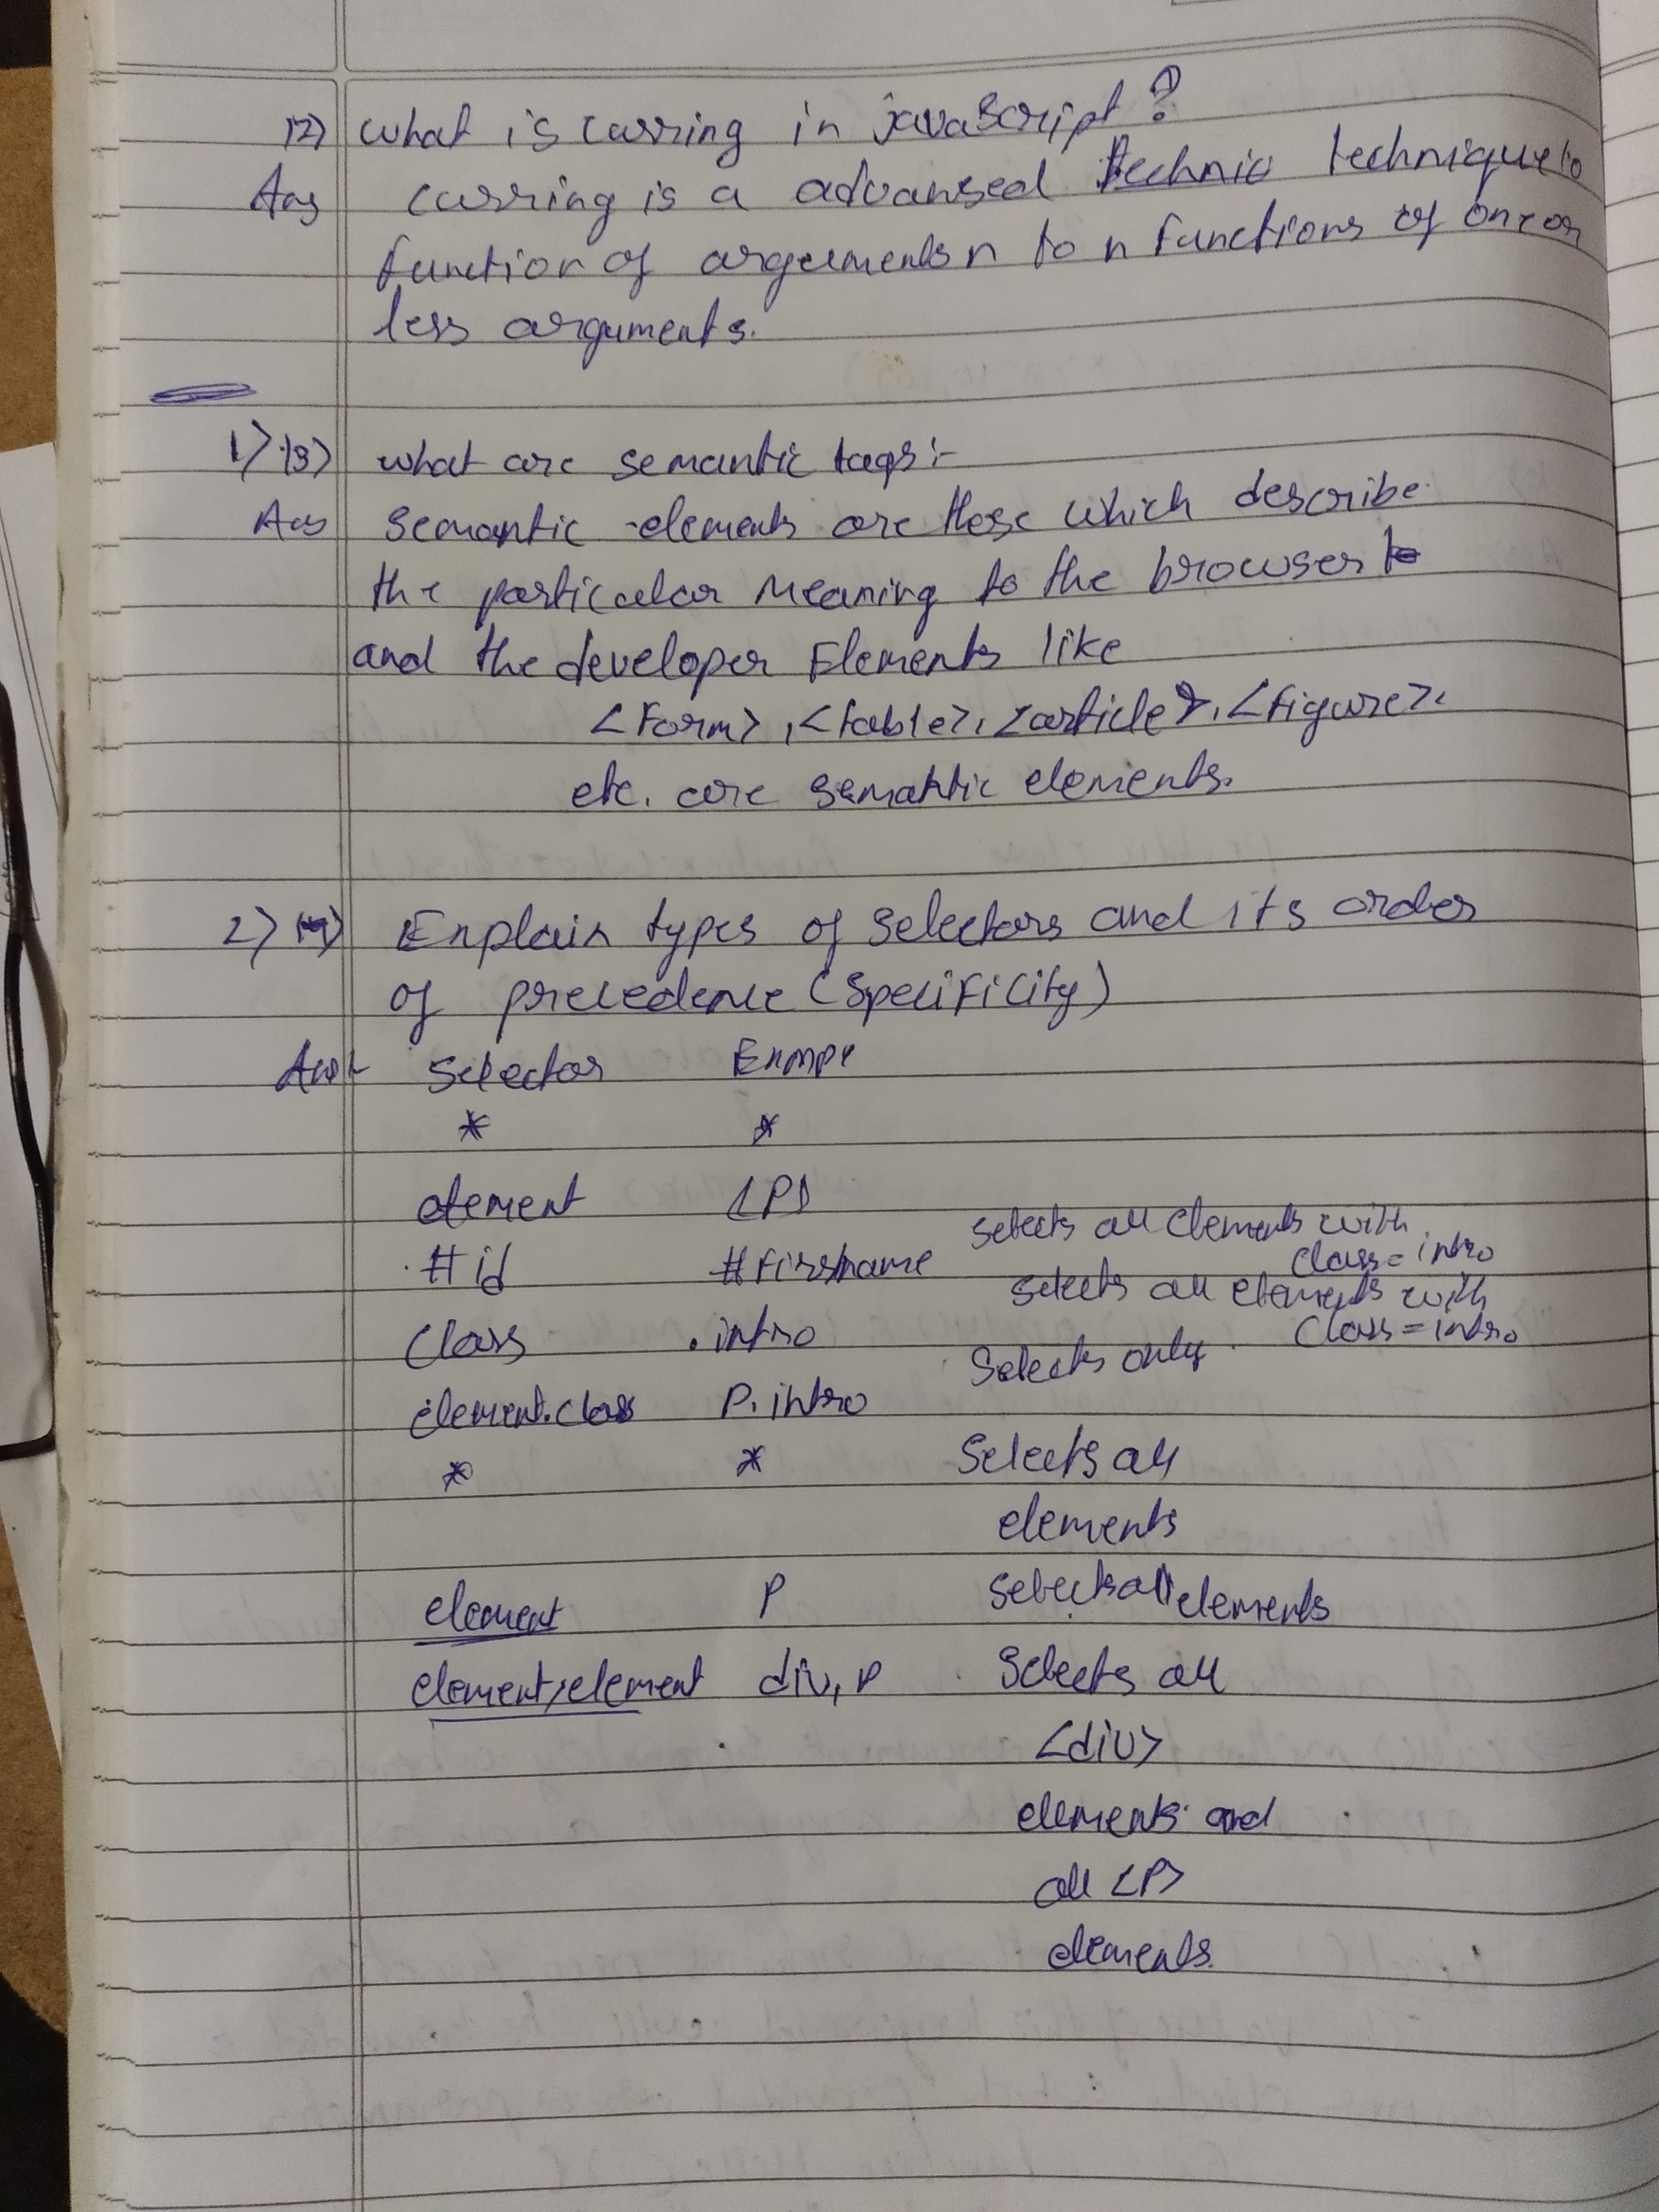 12) what is curring in javaScript?
Ans curring is a advansed technic technique to
function of arguements n to n functions of one or
less arguments.
1) 13) what are semantic tags:-
Ans semantic elements are these which describe
the particular meaning to the browser to
and the developer Elements like
<Form>, <table>, <article>, <figure>.
etc. are semantic elements.
2) 14) Explain types of selectors and its order
of precedence (specificity)
Ans:- Selector Exmpe
* *
element <P>
#id #firstname selects all elements with class=intro
class .intro selects all elements with class=intro
element.class P.intro Selects only
* * Selects all
elements
element P selects all elements
element,element div, P Selects all
<div>
elements and
all <P>
elements.